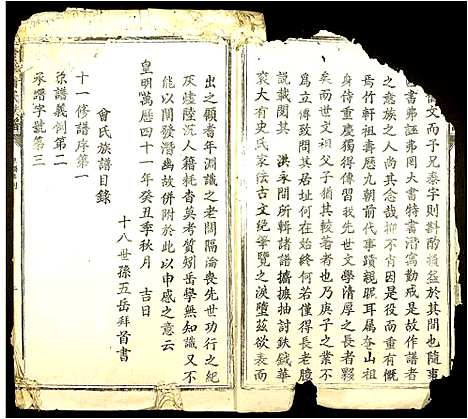 儒文而予兄泰字則斟酌損益於其間也隨事
書弗誣弗罔大書特書潛寓勸戒是故作譜者
之意族之人尚其念哉抑不肖因是役而重有慨
焉竹軒祖壽歷九朝前代事蹟親耵耳屬奎山祖
身侍重慶獨得傳習我先世文學清厚之長者顆
矣而世文祖父子猶其較著者也乃庚子之業不
爲立傳致問其居址何在始終何若僅得長老臆
説載閔其 洪永間所輯諸譜攟摭抽討鉄鉞華
衮大有史氏家法古文絶筆覽之淚墮茲欲表而
出之顧耆年淵識之老闊隔淪喪先世功行之紀
灰爐陸沉人籍耗沓莫考莫質矧岳學無知識又不
能以闡發潛幽故併附於此以申感之意云
皇明萬曆四十一年癸丑季秋月 吉日
十八世孫五岳拜首書
曾氏族譜目錄
十一修譜序第一
宗譜義例第二
承增字號第三